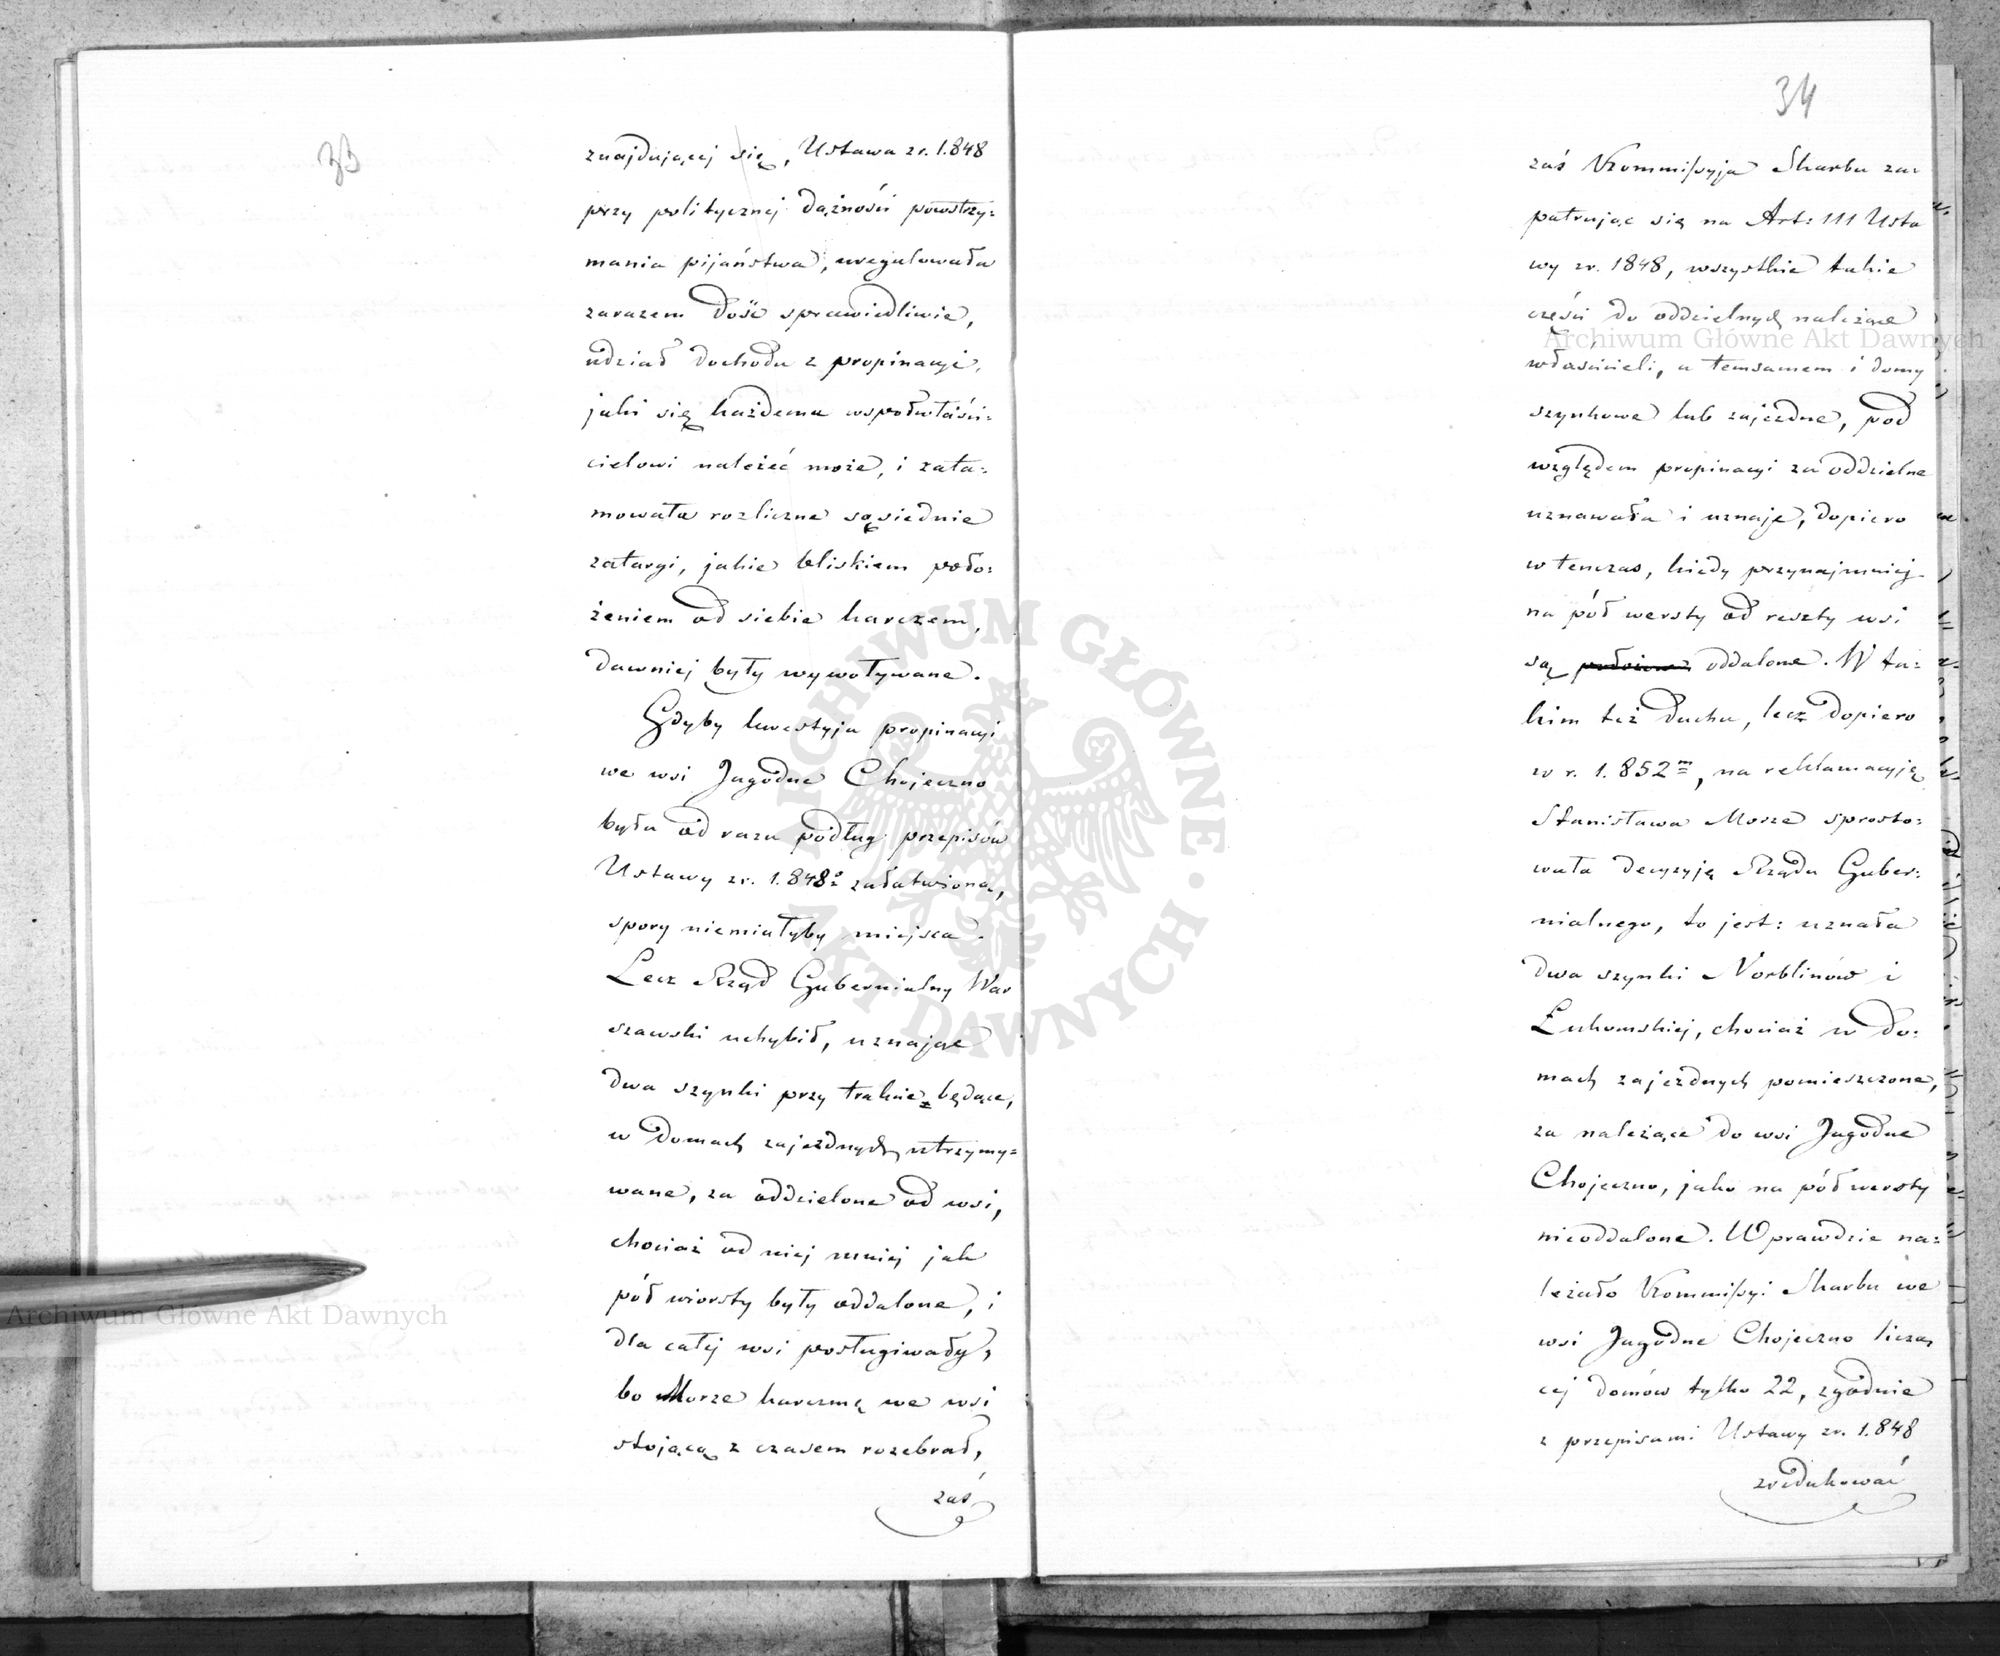 33
znajdującej się, Ustawa z r. 1.848
przy politycznej dążności powstrzy=
mania pijaństwa, uregulowała
zarazem dość sprawiedliwie,
udział dochodu z propinacyi,
jaki się każdemu wspołwłaści=
cielowi należeć może, i zata=
mowała rozliczne sąsiednie
zatargi, jakie bliskiem poło=
żeniem od siebie karczem,
dawniej były wywoływane.
Gdyby kwestyja propinacyi
we wsi Jagodne Chojeczno
była od razu podług przepisów
Ustawy z r. 1.848º załatwiona,
spory niemiałyby miejsca.
Lecz Rząd Gubernialny War
szawski uchybił, uznając
dwa szynki przy trakcie będące,
w domach zajezdnych utrzymy=
wane, za oddzielone od wsi,
chociaż od niej mniej jak
pół wiorsty były oddalone, i
dla całej wsi posługiwały,
bo Morze karczmę we wsi
stojącą z czasem rozebrał,
zaś
34
zaś Kommissyja Skarbu za=
patrując się na Art: 111 Usta
wy z r. 1848, wszystkie takie
części do oddzielnych należące
właścicieli, a temsamem i domy
szynkowe lub zajezdne, pod
względem propinacyi za oddzielne
uznawała i uznaje, dopiero
w tenczas, kiedy przynajmniej
na pół wersty od reszty wsi
są położone oddalone. W ta=
kim też duchu, lecz dopiero
w r. 1.852m, na reklamacyję
Stanisława Morze sprosto=
wała decyzyję Rządu Guber=
nialnego, to jest: uznała
dwa szynki Norblinów i
Łukomskiej, chociaż w do=
mach zajezdnych pomieszczone,
za należące do wsi Jagodne
Chojeczno, jako na pół wersty
nieoddalone. Wprawdzie na=
leżało Kommissyi Skarbu we
wsi Jagodne Chojeczno liczą
cej domów tylko 22, zgodnie
z przepisami Ustawy z r. 1.848
zredukować
Archiwum Główne Akt Dawnych
Archiwum Główne Akt Dawnych
ARCHIWUM GŁÓWNE AKT DAWNYCH